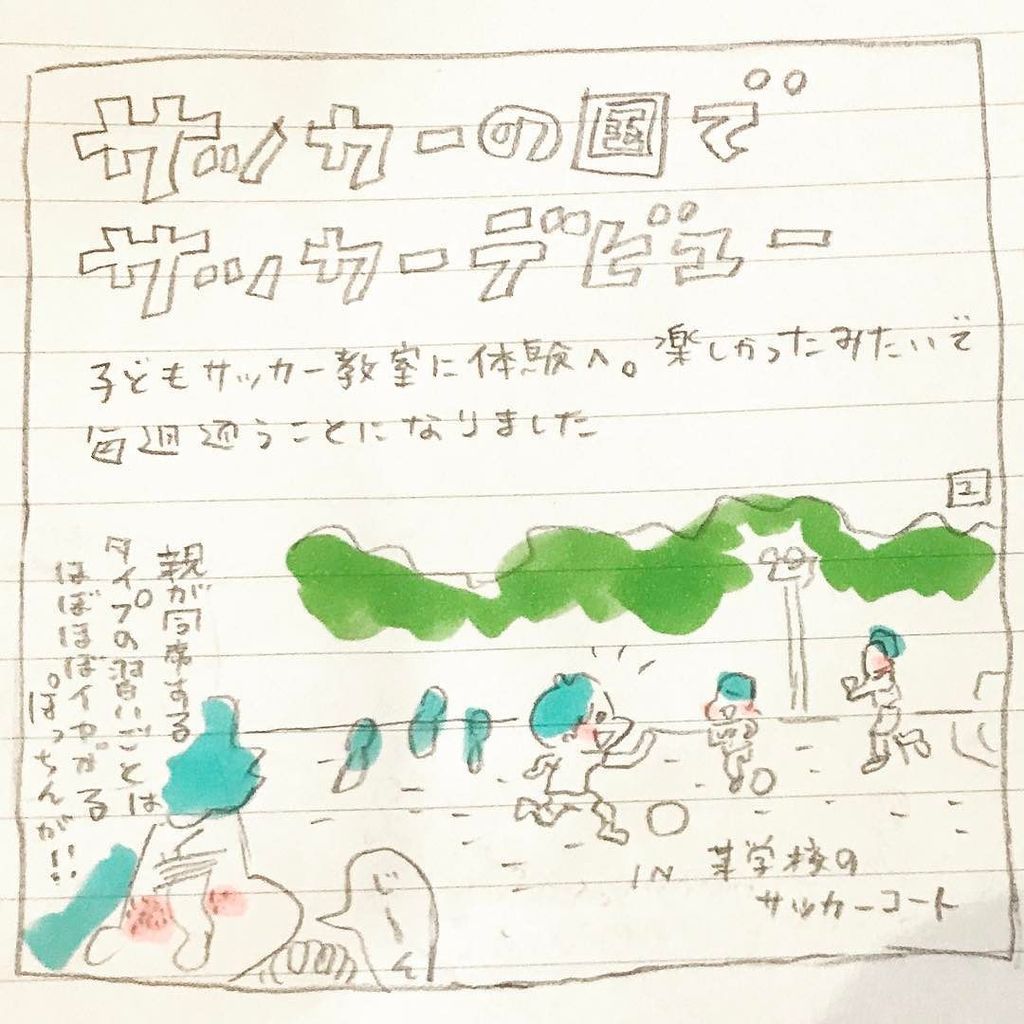 サッカーの国で
サッカーデビュー
子どもサッカー教室に体験へ。楽しかったみたいで
毎週通うことになりました
2
親が同席する
タイプの習いごとは
ほぼほぼイヤがる
ぽっちんが!!
じーん
IN 某学校の
サッカーコート